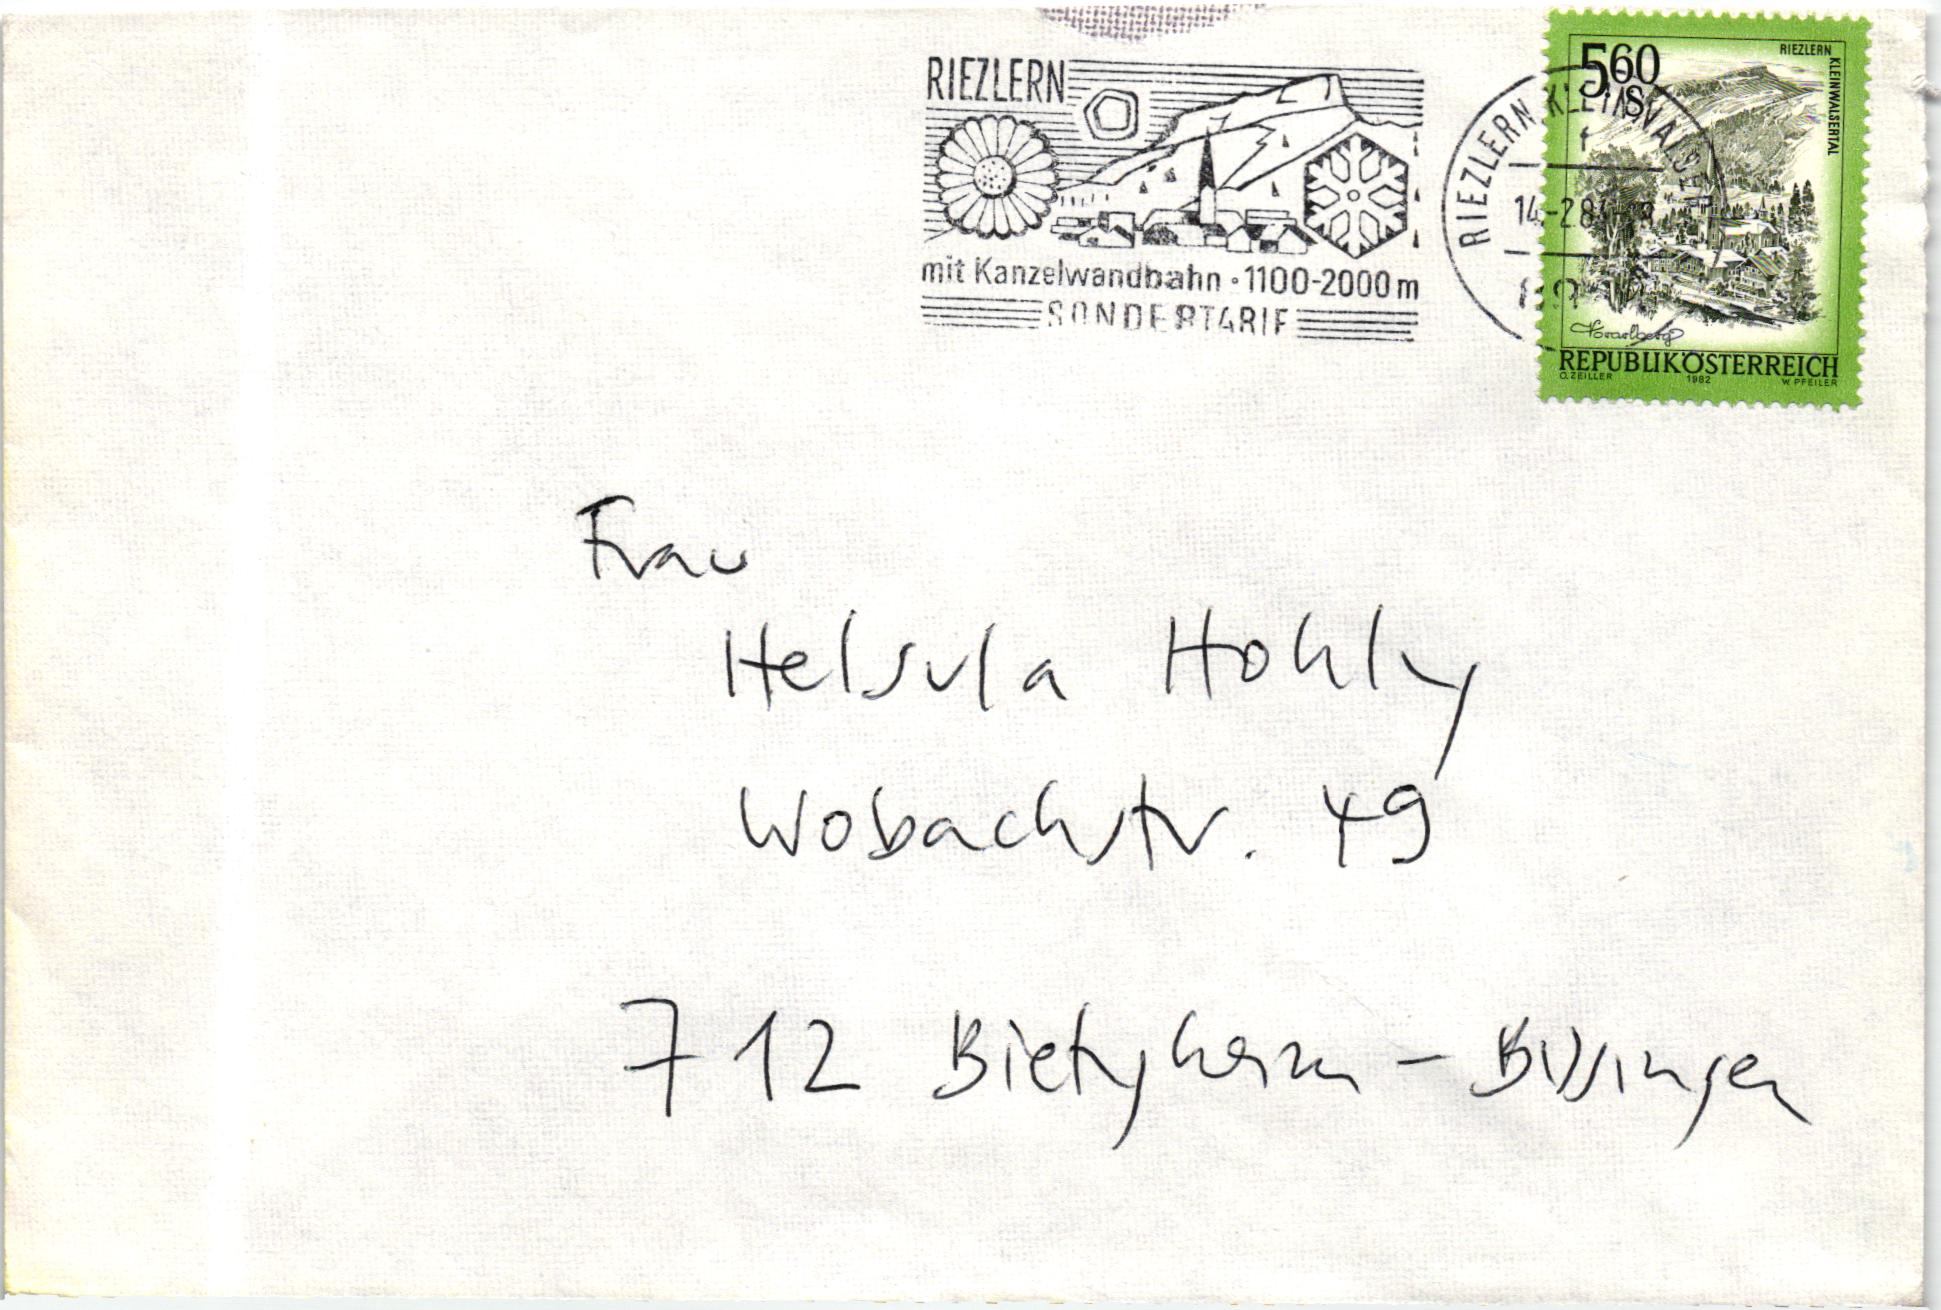 RIEZLERN
mit Kanzelwandbahn · 1100-2000 m
SONDERTARIF
RIEZLERN, KLEINWALSERT
14.-2.84-18
560
S
RIEZLERN
KLEINWALSERTAL
Vorarlberg
REPUBLIK ÖSTERREICH
O. ZEILLER 1982 W. PFEILER
Frau
Helsula Hohly
Wobachstr. 49
712 Bietigheim - Bissingen